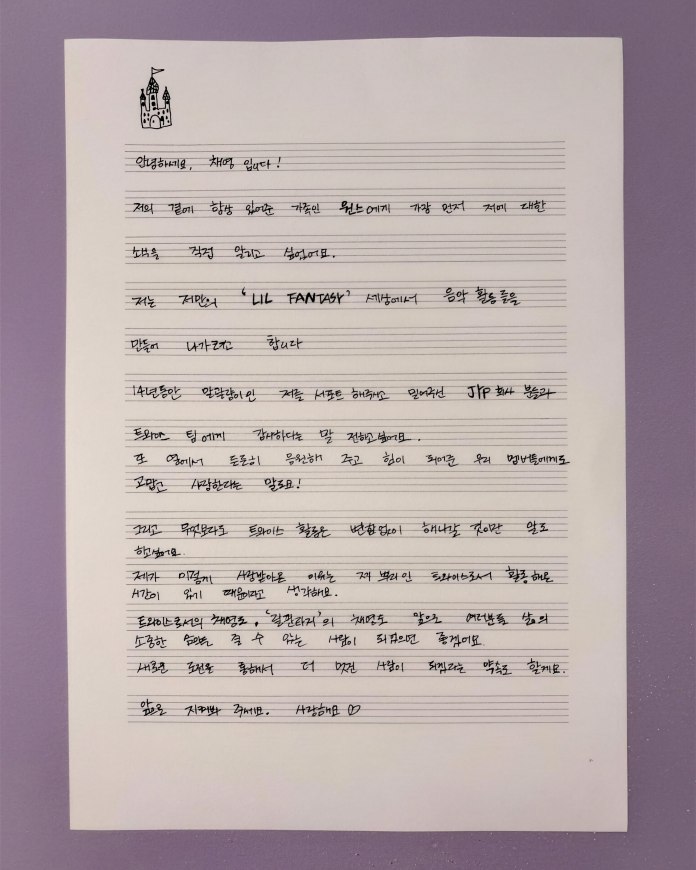 안녕하세요, 채영 입니다!
저의 곁에 항상 있어준 가족인 원스에게 가장 먼저 저에 대한
소식을 직접 알리고 싶었어요.
저는 저만의 'LIL FANTASY' 세상에서 음악 활동들을
만들어 나가려고 합니다
14년동안 말괄량이인 저를 서포트 해주시고 믿어주신 JYP 회사 분들과
트와이스 팀에게 감사하다는 말 전하고싶어요.
또 옆에서 든든히 응원해 주고 힘이 되어준 우리 멤버들에게도
고맙고 사랑한다는 말도요!
그리고 무엇보다도 트와이스 활동은 변함없이 해나갈 것이란 말도
하고싶어요.
제가 이렇게 사랑받아온 이유는 제 뿌리인 트와이스로서 활동해온
시간이 있기 때문이라고 생각해요.
트와이스로서의 채영도, '릴판타지'의 채영도 앞으로 여러분들 삶의
소중한 힘이 될 수 있는 사람이 되었으면 좋겠어요
새로운 도전을 통해서 더 멋진 사람이 되겠다는 약속도 할게요.
앞으로 지켜봐 주세요. 사랑해요 ♡